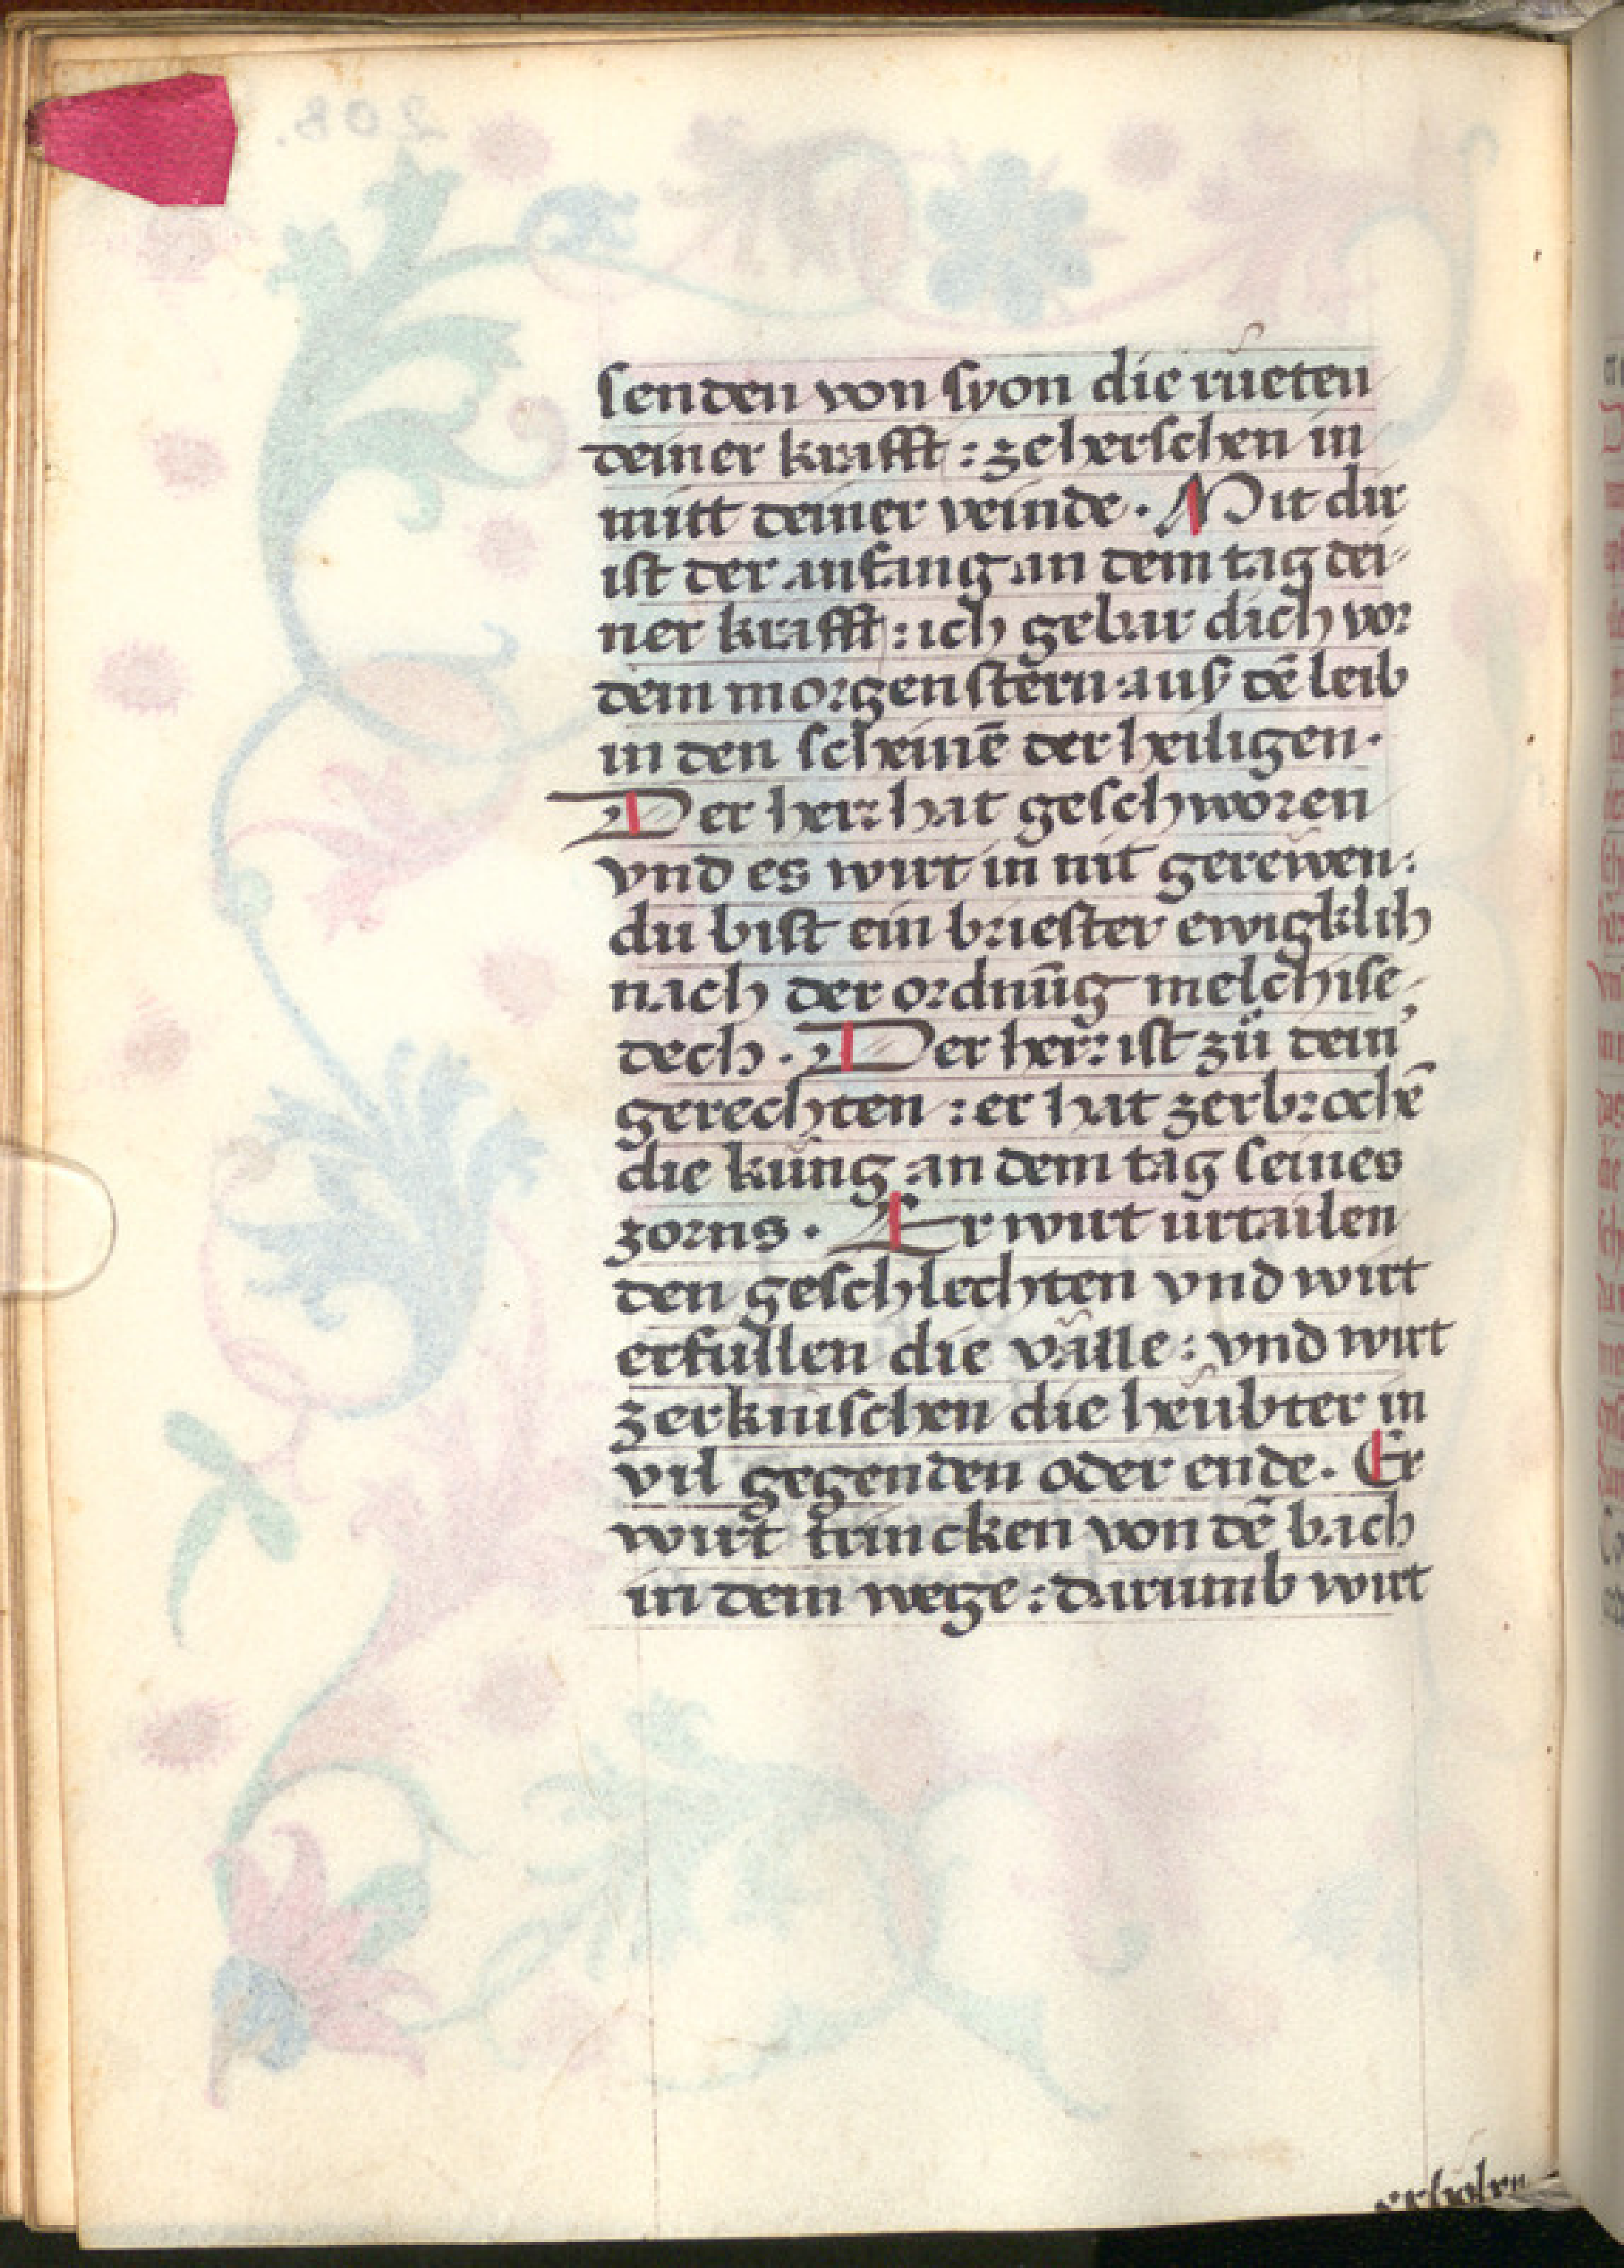 senden von syon die rueten
deiner krafft : zeherschen in
mitt deiner veinde · Mit dir
ist der anfang an dem tag dei-
ner krafft : ich gebar dich vor
dem morgenstern aus dē leib
in den scheinē der heiligen ·
Der herr hat geschworen
vnd es wirt in nit gerewen :
du bist ein briester ewigklich
nach der ordnūg melchise-
dech · Der herr ist zů dein
gerechten : er hat zerbrochē
die kung an dem tag seines
zorns · Er wirt urtailen
den geschlechten vnd wirt
erfullen die välle : vnd wirt
zerknischen die heubter in
vil gegenden oder ende · Er
wirt trincken von dē bach
in dem wege : darumb wirt